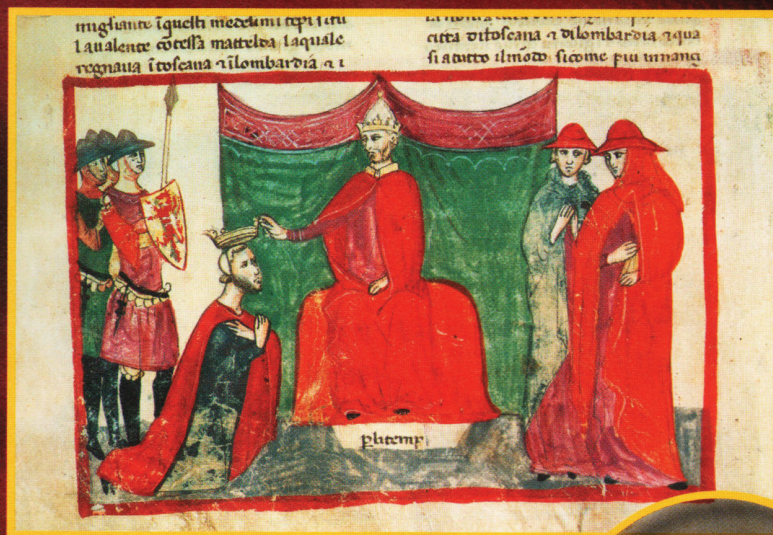 migliante ĩquesti medesimi tẽpi si fu
la ualente cõtessa mattelda laquale
regnaua ĩ toscana ⁊ ĩ lombardia ⁊ i
citta di toscana ⁊ di lombardia ⁊ qua
si a tutto il mõdo si come piu innanzi